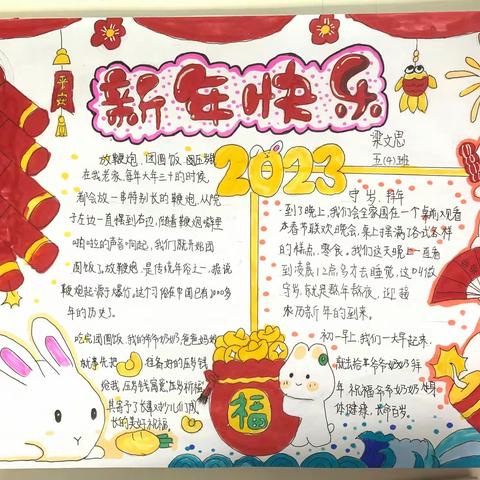 新年快乐
平安
梁文思
五(4)班
2023
放鞭炮、团圆饭、压岁钱
在我老家,每年大年三十的时候,
都会放一串特别长的鞭炮,从院
子左边一直摆到右边,伴随着鞭炮噼里
啪啦的声音响起,我们就开始团
圆饭了,放鞭炮,是传统年俗之一,据说
鞭炮起源于爆竹。这个习俗在中国已有2000多年
的历史了。
吃完团圆饭,我的爷爷奶奶爸爸妈妈
就拿出
准备好的压岁钱
给我,压岁钱寓意压岁祈福
其寄予了长辈对小儿们成
长的美好祝福。
守岁、拜年
到了晚上,我们会全家围在一个桌前观看
春节联欢晚会,桌上摆满了各式各样
的糕点、零食。我们这天晚上一直看
到凌晨12点多才去睡觉,这叫做
守岁,就是熬年熬夜,迎接
农历新年的到来。
初一早上,我们一大早起来,
就去给爷爷奶奶拜
年,祝福爷爷奶奶身
体健康,长命百岁。
福